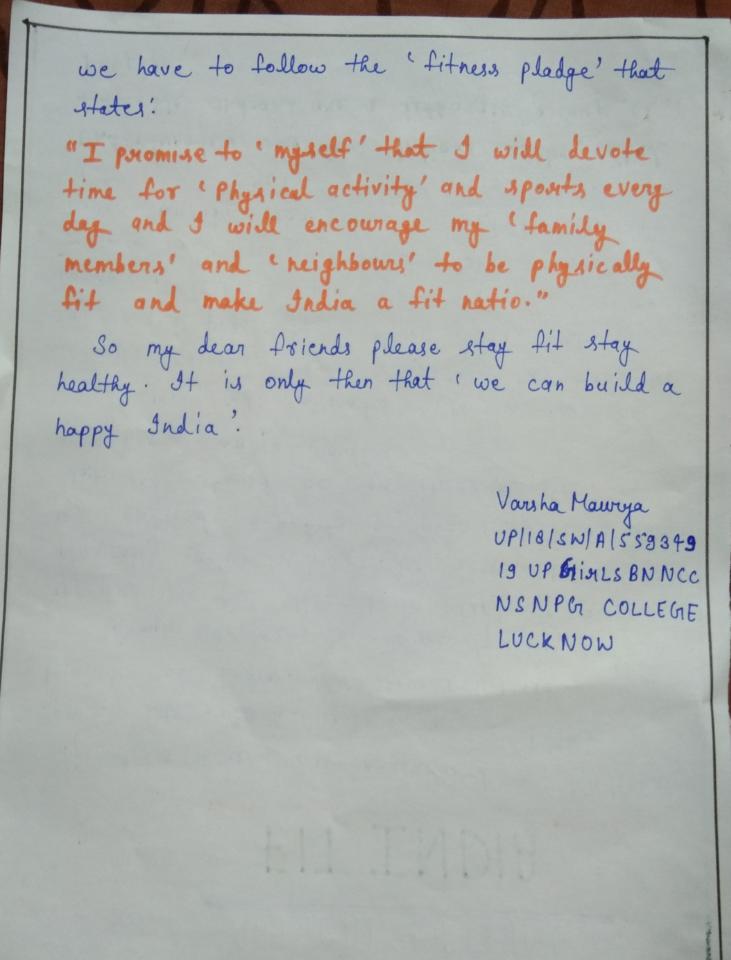 we have to follow the 'fitness pladge' that
states:
"I promise to 'myself' that I will devote
time for 'Physical activity' and sports every
day and I will encourage my 'family
members' and 'neighbours' to be physically
fit and make India a fit natio."
So my dear friends please stay fit stay
healthy. It is only then that 'we can build a
happy India'.
Varsha Maurya
UP/18/SW/A/559349
19 UP GIRLS BN NCC
NSNPG COLLEGE
LUCKNOW
FIT INDIA